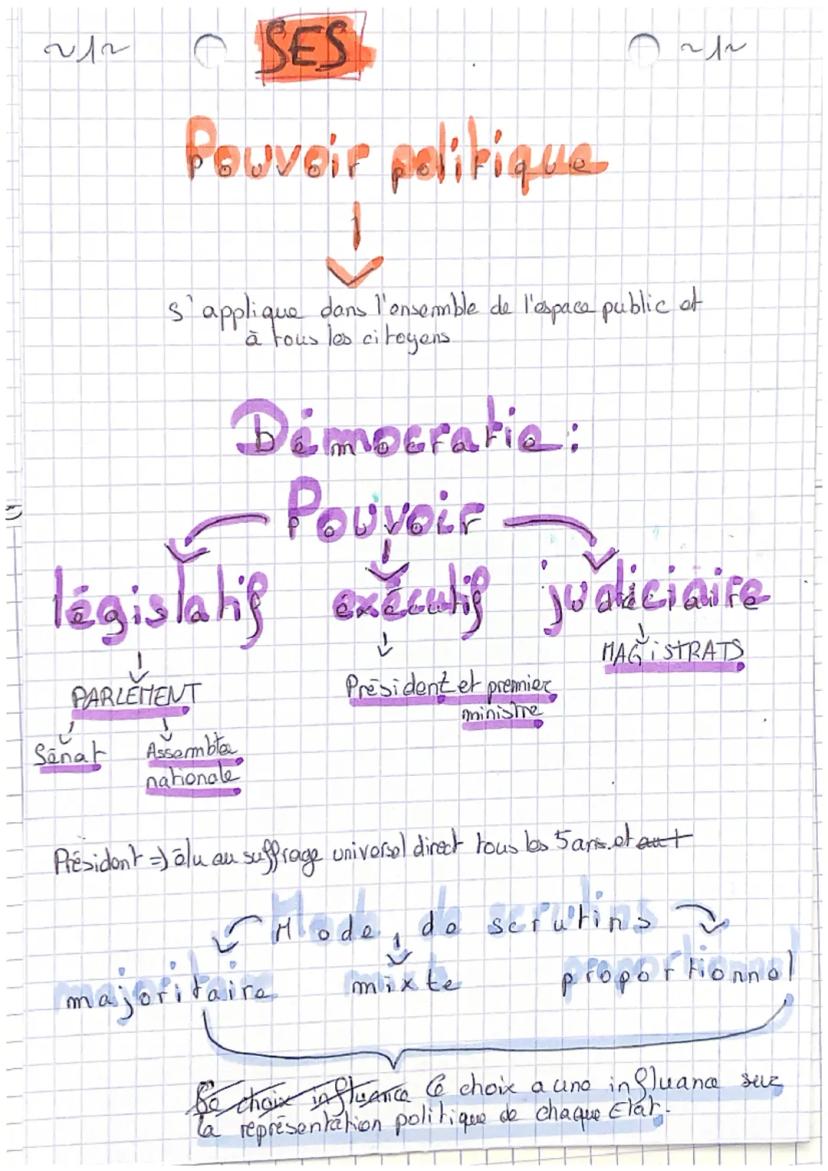 SES
Pouvoir politique
s'applique dans l'ensemble de l'espace public et
à tous les citoyens
Démocratie :
Pouvoir
législatif exécutif judiciaire
MAGISTRATS
PARLEMENT
Président et premier
ministre
Sénat
Assemblée
nationale
Président => élu au suffrage universel direct tous les 5 ans. et aut
Mode de scrutins
majoritaire mixte proportionnel
Ce choix influance Ce choix a une influance sur
la représentation politique de chaque Etat.